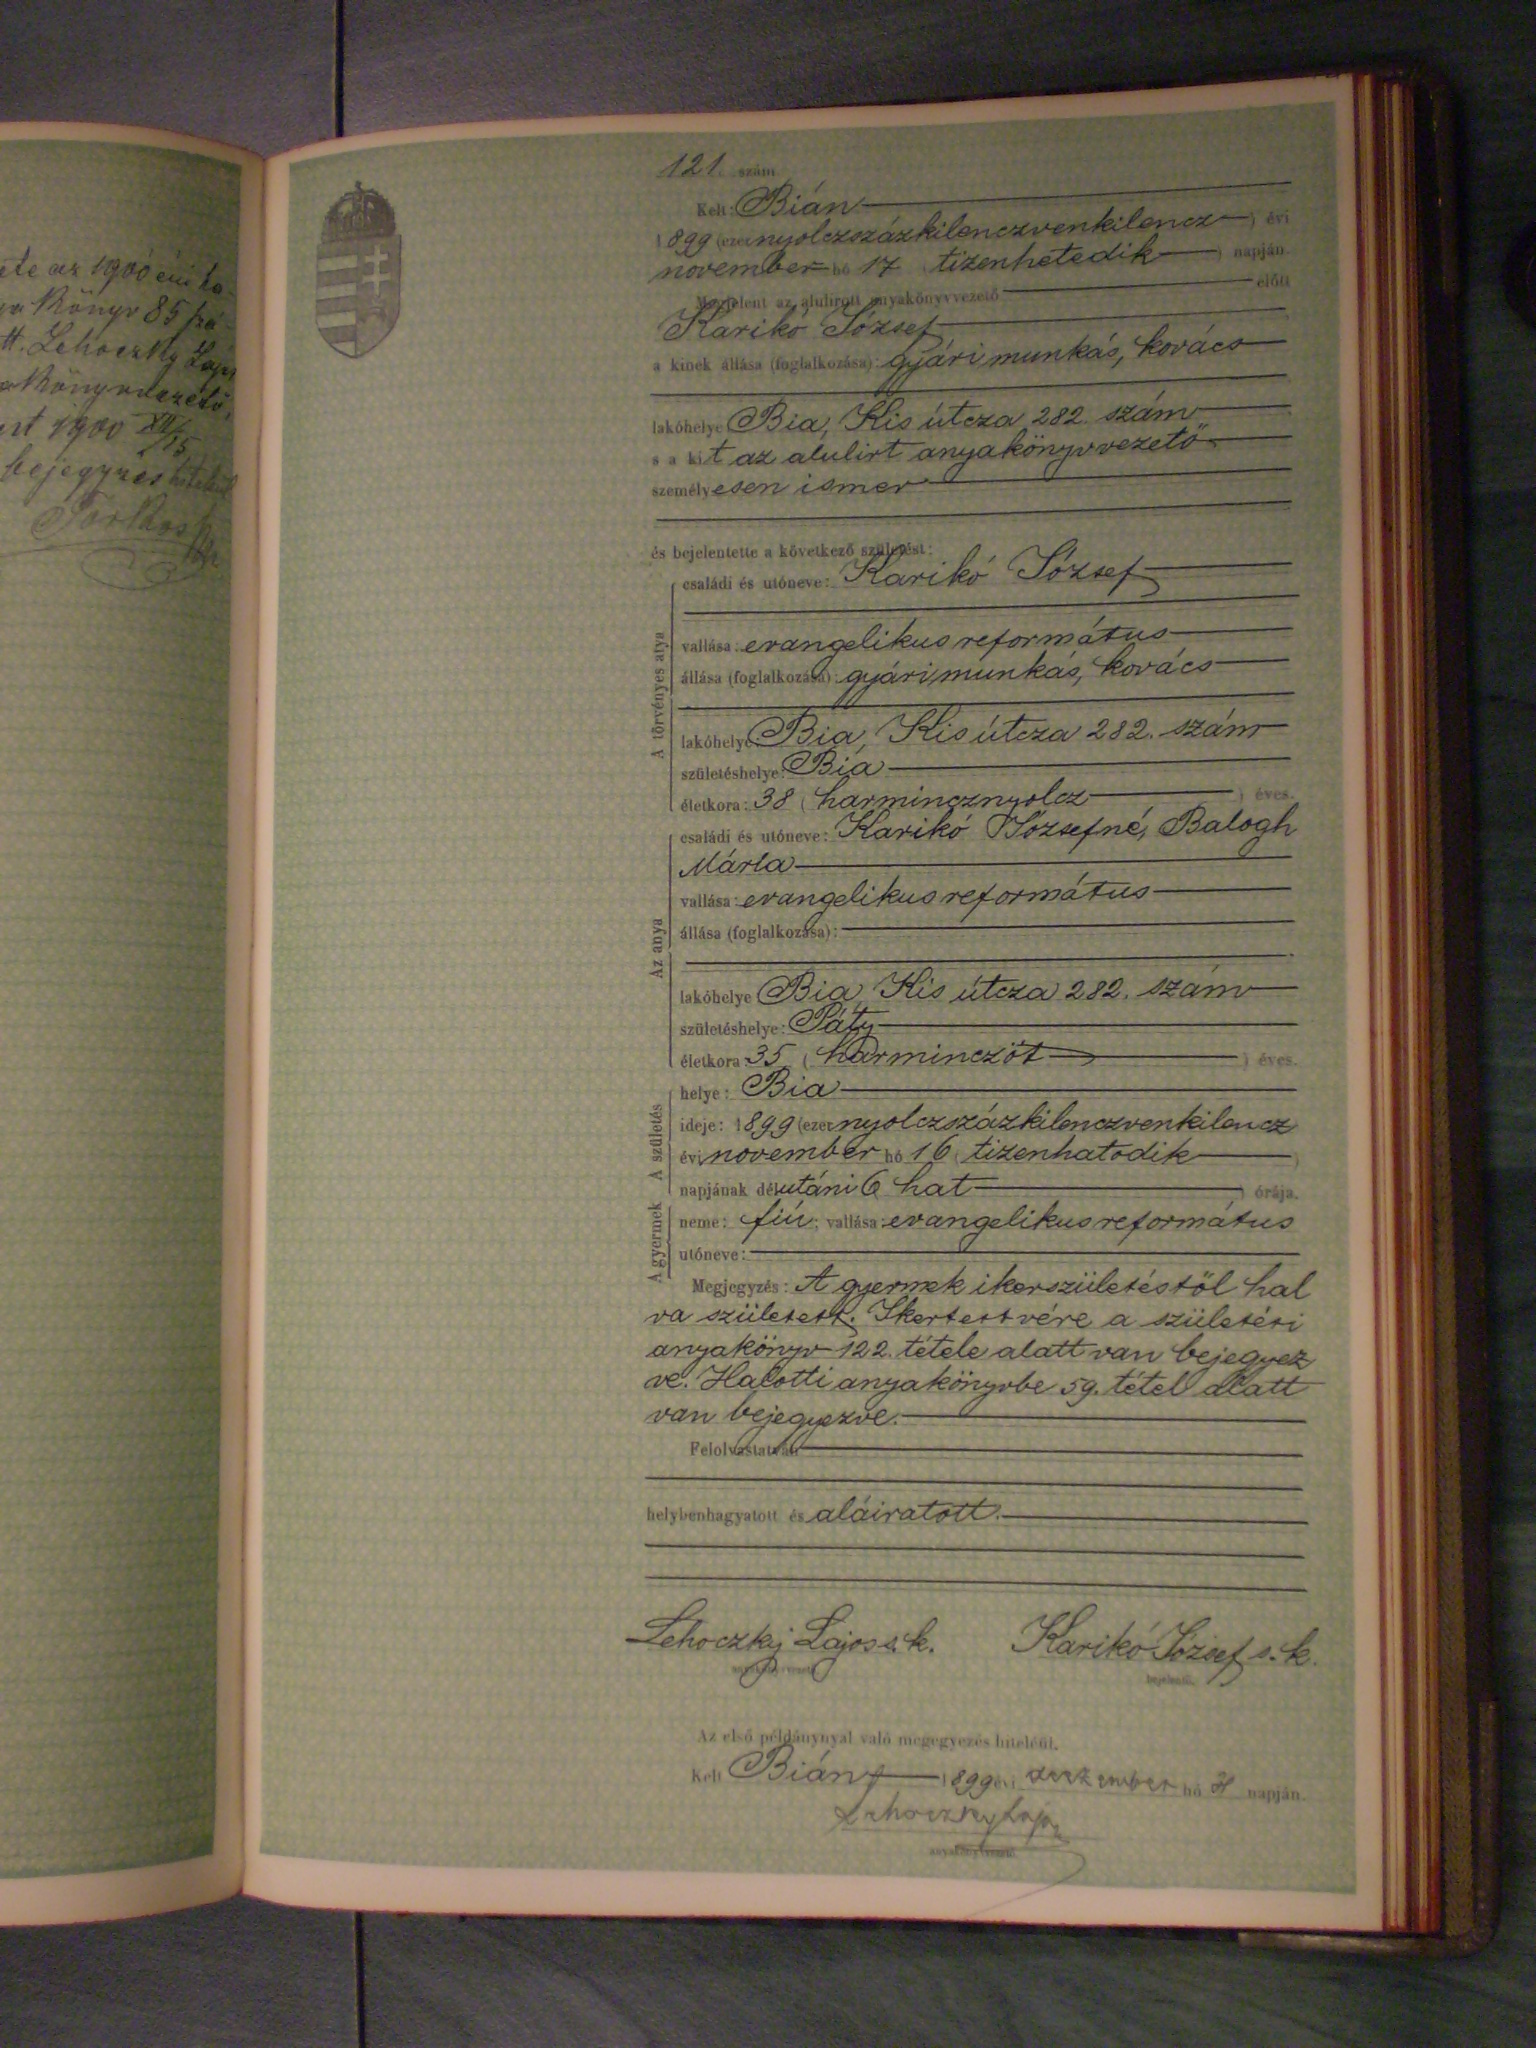 ete az 1900 évi ha-
könyv 85 szá-
tt. Lehoczky Lajos
akönyvvezető,
1900 XII/15.
bejegyzés hiteléül
121. szám
Kelt: Bián
1899 (ezernyolczszázkilenczvenkilencz) évi
november hó 17 (tizenhetedik) napján.
Megjelent az alulirott anyakönyvvezető előtt
Karikó József
a kinek állása (foglalkozása): gyári munkás, kovács
lakóhelye Bia, Kis útcza 282. szám
s a kit az alulirt anyakönyvvezető
személyesen ismer
és bejelentette a következő születést:
A törvényes atya
családi és utóneve: Karikó József
vallása: evangelikus református
állása (foglalkozása): gyári munkás, kovács
lakóhelye: Bia, Kis útcza 282. szám
születéshelye: Bia
életkora: 38 (harmincznyolcz) éves.
Az anya
családi és utóneve: Karikó Józsefné, Balogh
Mária
vallása: evangelikus református
állása (foglalkozása):
lakóhelye Bia, Kis útcza 282. szám
születéshelye: Páty
életkora: 35 (harminczöt) éves.
A születés
helye: Bia
ideje: 1899 (ezernyolczszázkilenczvenkilencz
évi november hó 16 (tizenhatodik)
napjának délutáni 6 (hat) órája.
A gyermek
neme: fiú; vallása: evangelikus református
utóneve:
Megjegyzés: A gyermek ikerszületéstől hal
va született. Ikertestvére a születési
anyakönyv 122. tétele alatt van bejegyez
ve. Halotti anyakönyvbe 59. tétel alatt
van bejegyezve.
Felolvastatván
helybenhagyatott és aláiratott.
Lehoczky Lajos s. k. Karikó József s. k.
anyakönyvvezető bejelentő.
Az első példánynyal való megegyezés hiteléül.
Kelt Bián 1899 évi deczember hó 31 napján.
Lehoczky Lajos
anyakönyvvezető